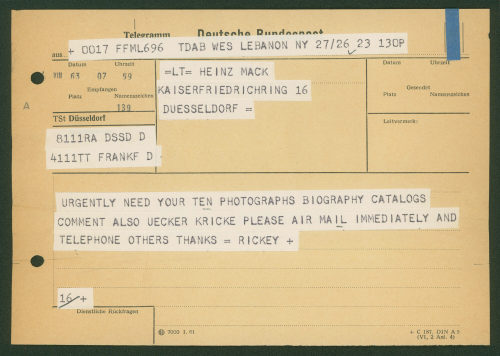 Telegramm Deutsche Bundespost
aus
+ 0017 FFML696 TDAB WES LEBANON NY 27/26 23 130P
Datum Uhrzeit
VIII 63 07 59
Empfangen
Platz Namenszeichen
139
TSt Düsseldorf
8111RA DSSD D
4111TT FRANKF D
=LT= HEINZ MACK
KAISERFRIEDRICHRING 16
DUESSELDORF =
Datum Uhrzeit
Gesendet
Platz Namenszeichen
Leitvermerk:
A
URGENTLY NEED YOUR TEN PHOTOGRAPHS BIOGRAPHY CATALOGS
COMMENT ALSO UECKER KRICKE PLEASE AIR MAIL IMMEDIATELY AND
TELEPHONE OTHERS THANKS = RICKEY +
16 +
Dienstliche Rückfragen
7000 I. 61
+ C 187, DIN A 5
(VI, 2 Anl. 4)